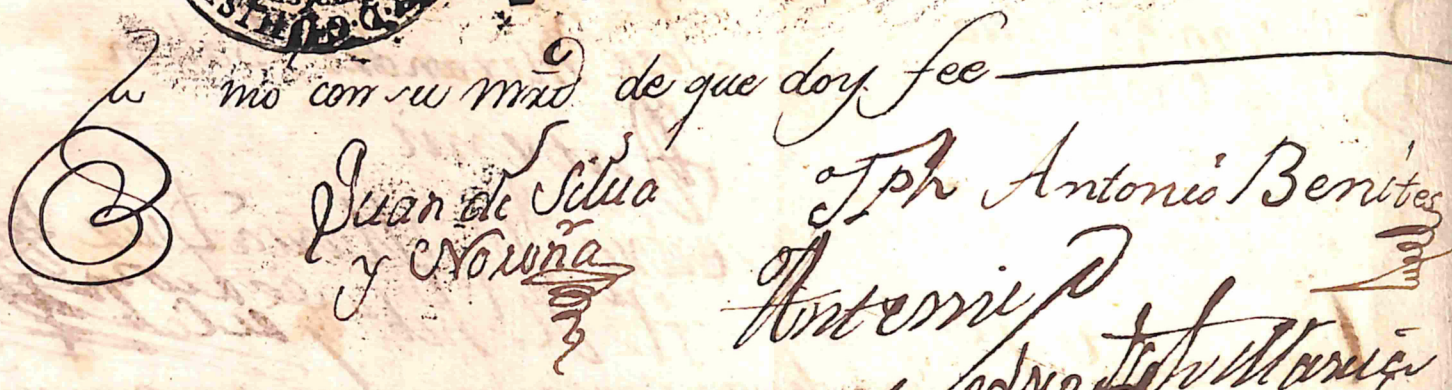 mo con su mrd de que doy fee
Juan de Silua
y Noroña
Jph Antonio Benites
Ante mi